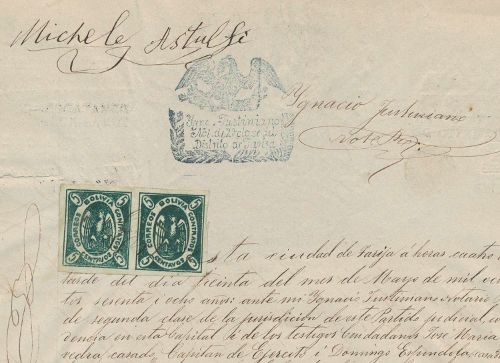 Michele Astulfi
Ignacio Justiniano
Ygno. Justiniano
Distrito de Tarija
CORREOS BOLIVIA CONTRATOS CENTAVOS 5 5
CORREOS BOLIVIA CONTRATOS CENTAVOS 5 5
sta ciudad de Tarija á horas cuatro
tarde del dia treinta del mes de Mayo de mil
tos sesenta i ocho años: ante mi Ignacio Justiniano Notario
de segunda clase de la jurisdicion de este Partido judicial
dencia en esta Capital i de los testigos Ciudadanos José Maria
vedia, casado, Capitan de Ejercito i Domingo Espindola